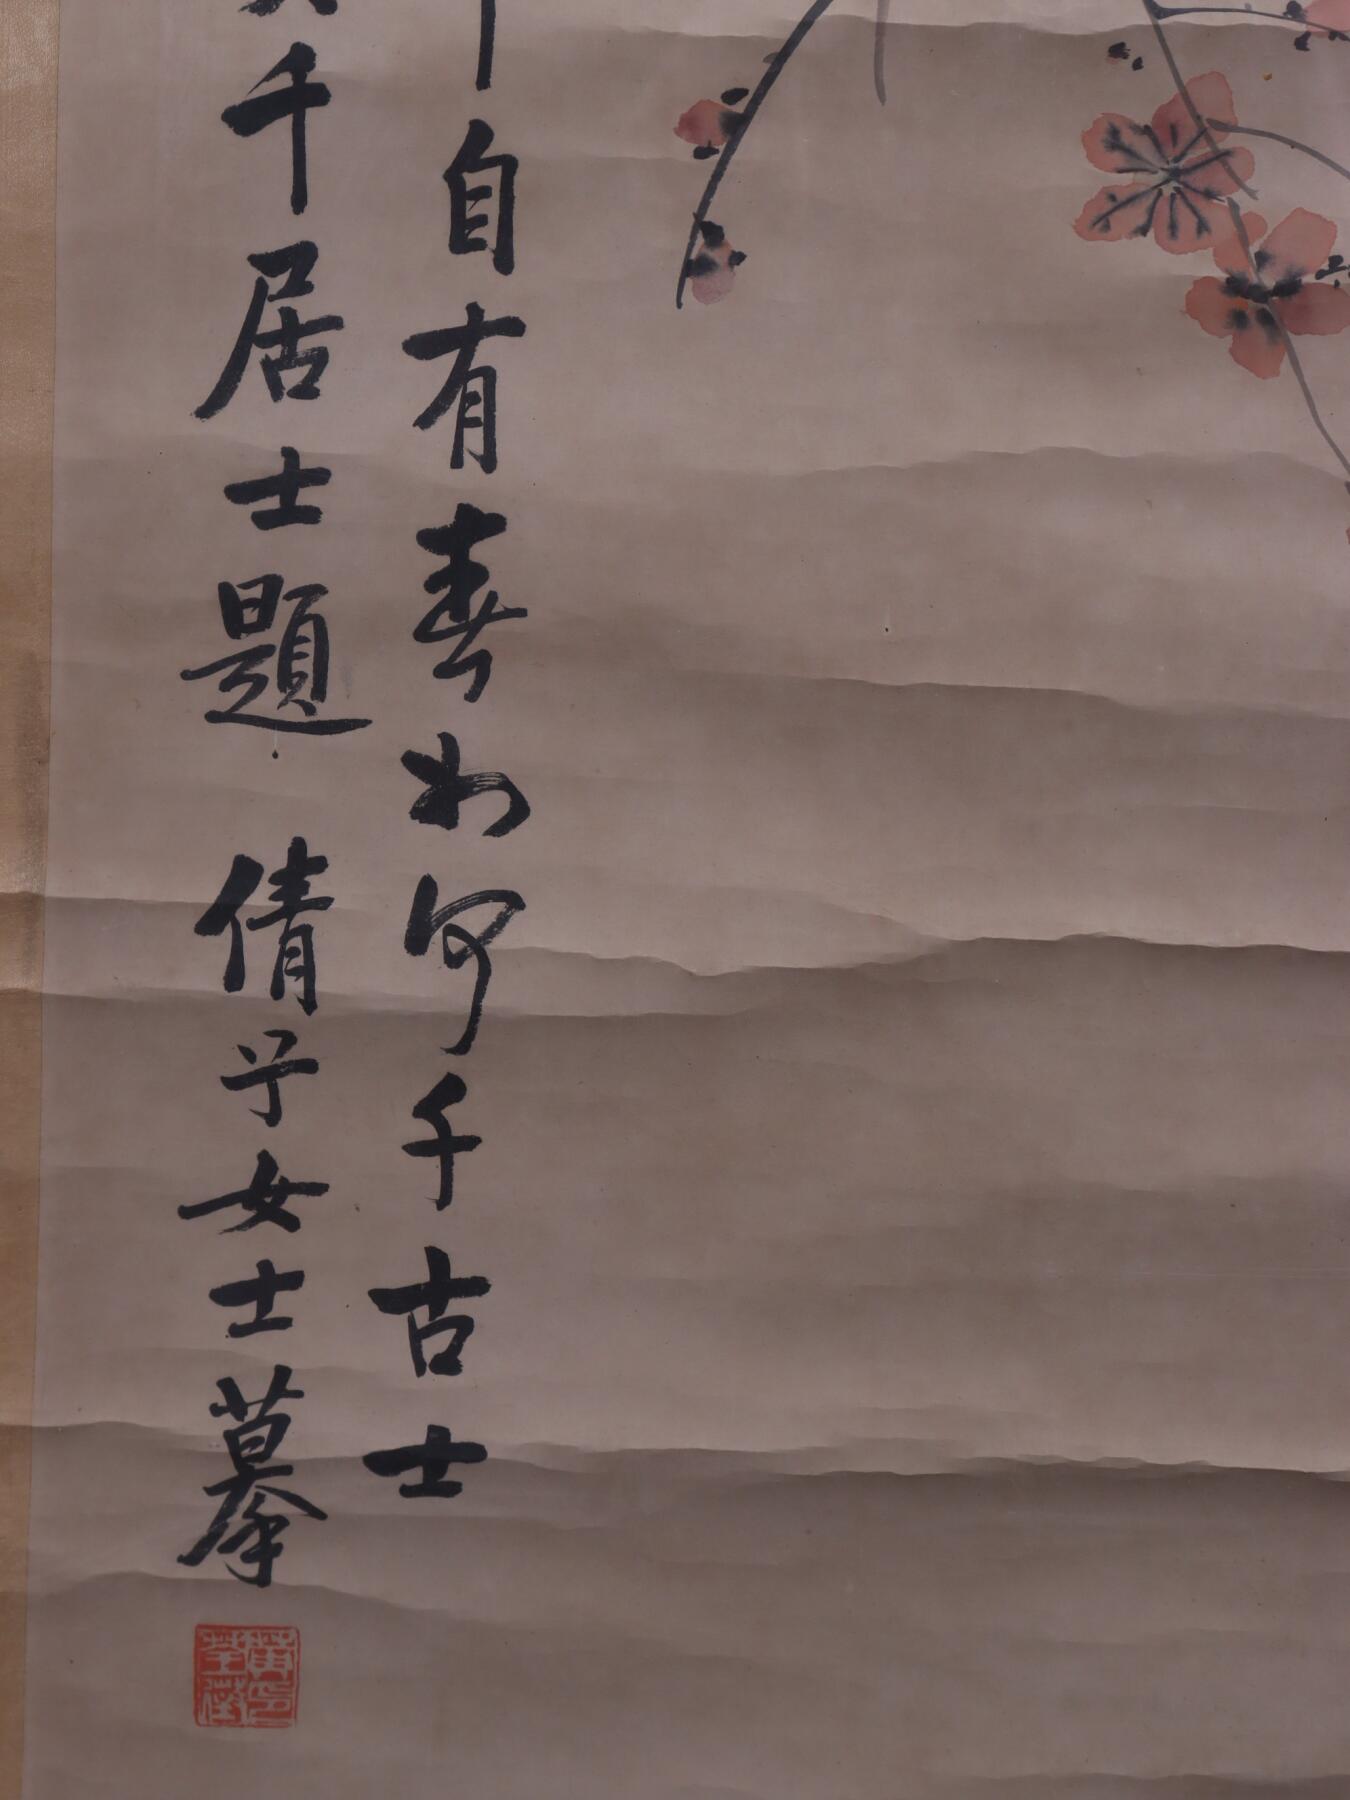 自有春如何千古士
千居士題 倩兮女士摹